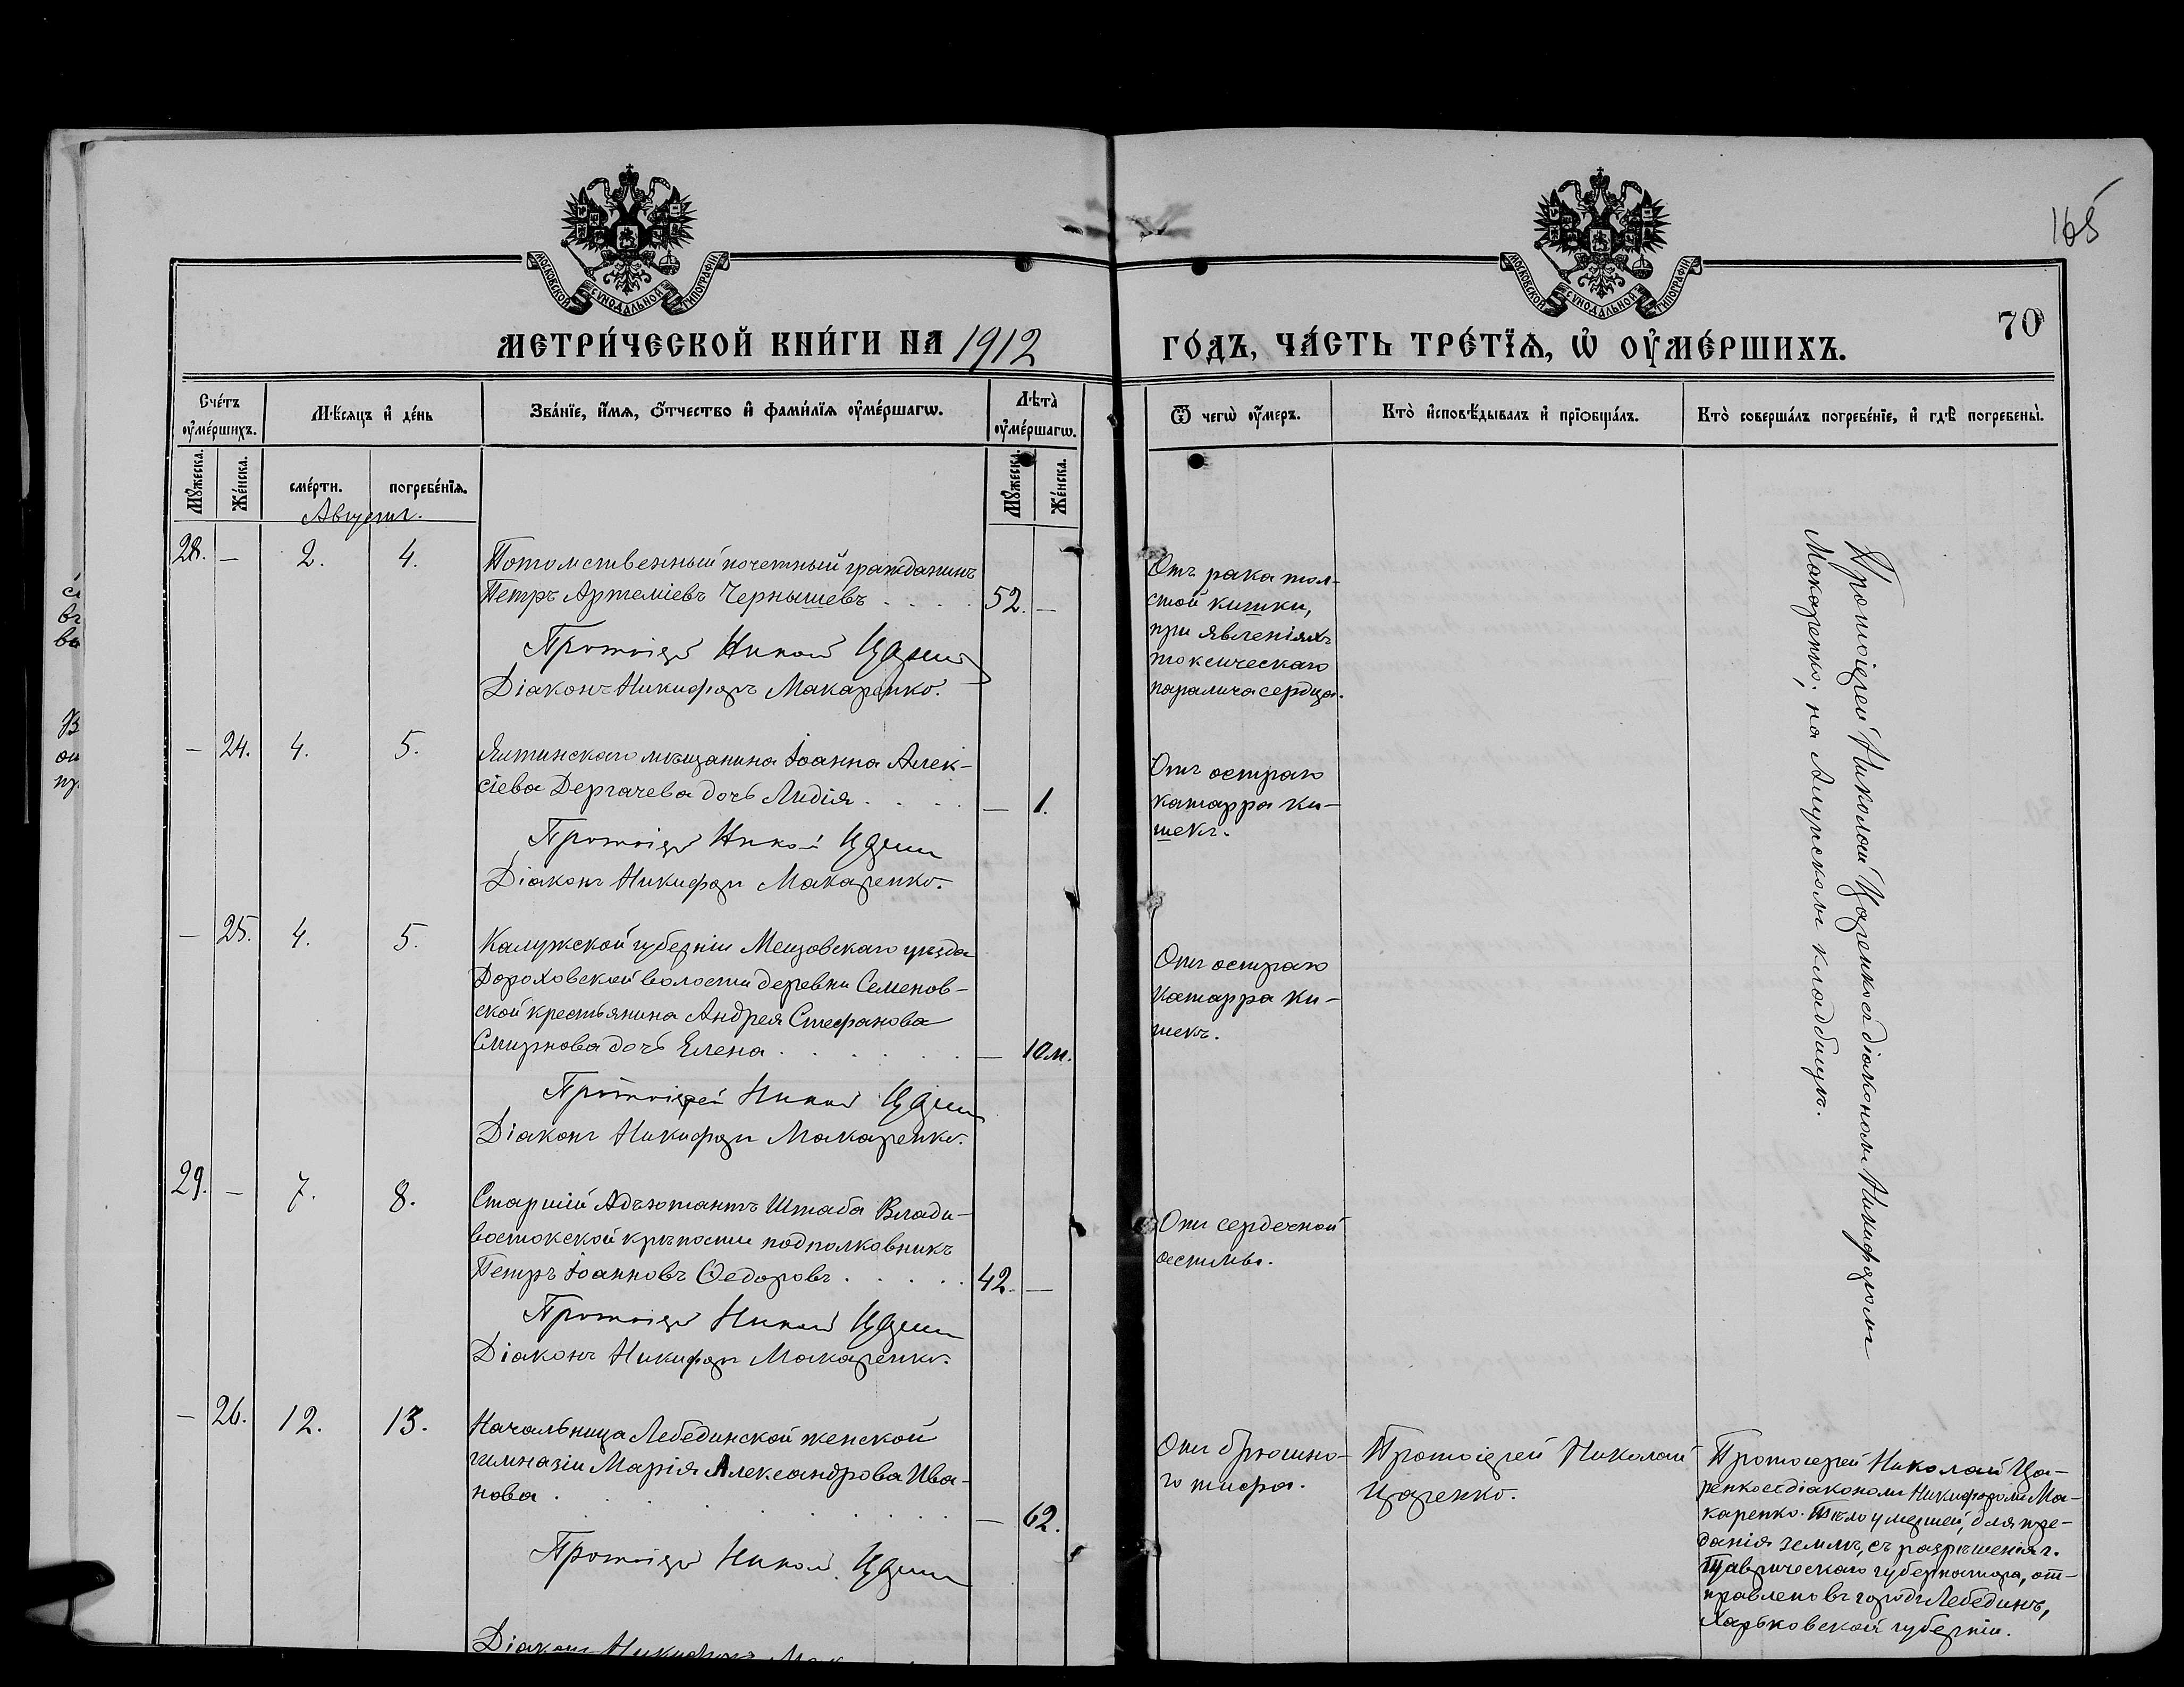 165
МОСКОВСКОЙ СѴНОДАЛЬНОЙ ТИПОГРАФІИ
МОСКОВСКОЙ СѴНОДАЛЬНОЙ ТИПОГРАФІИ
70
МЕТРИ́ЧЕСКОЙ КНИ́ГИ НА 1912 ГО́ДЪ, ЧА́СТЬ ТРЕ́ТЇѦ, Ѡ҆ ОУ҆МЕ́РШИХЪ.
Сче́тъ оу҆ме́ршихъ.
Мѣ́сяцъ и҆ де́нь
Зва́нїе, и҆́мѧ, ѻ҆́тчество и҆ фами́лїѧ оу҆ме́ршагѡ.
Лѣта̀ оу҆ме́ршагѡ.
Ѿ чегѡ̀ оу҆́меръ.
Кто̀ и҆сповѣ́дывалъ и҆ прїѻбща́лъ.
Кто̀ соверша́лъ погребе́нїе, и҆ гдѣ̀ погребены̀.
Мꙋ́жеска.
Же́нска.
сме́рти.
погребе́нїѧ.
Мꙋ́жеска.
Же́нска.
Августъ.
28. — 2. 4.
Потомственный почетный гражданинъ
Петръ Артеміевъ Чернышевъ . . . . 52. —
Протоіерей
Діаконъ Никифоръ Макаренко.
Отъ рака тол-
стой кишки,
при явленіяхъ
токсическаго
паралича сердца.
Протоіерей Николай Царенко съ діакономъ Никифоромъ
Макаренко; на Аутскомъ кладбищѣ.
— 24. 4. 5.
Ялтинскаго мѣщанина Іоанна Алек-
сіева Дергачева дочь Лидія . . . . — 1.
Протоіерей
Діаконъ Никифоръ Макаренко.
Отъ остраго
катарра ки-
шекъ.
— 25. 4. 5.
Калужской губерніи Мещовскаго уѣзда
Дороховской волости деревни Семенов-
ской крестьянина Андрея Стефанова
Смирнова дочь Елена . . . . . . — 10 м.
Протоіерей
Діаконъ Никифоръ Макаренко.
Отъ остраго
катарра ки-
шекъ.
29. — 7. 8.
Старшій Адъютантъ Штаба Влади-
востокской крѣпости подполковникъ
Петръ Іоанновъ Ѳедоровъ . . . . . 42. —
Протоіерей
Діаконъ Никифоръ Макаренко.
Отъ сердечной
астмы.
— 26. 12. 13.
Начальница Лебединской женской
гимназіи Марія Александрова Ива-
нова . . . . . . . . — 62.
Протоіерей
Діаконъ Никифоръ
Отъ брюшно-
го тифа.
Протоіерей Николай
Царенко.
Протоіерей Николай Ца-
ренко съ діакономъ Никифоромъ Ма-
каренко. Тѣло умершей, для пре-
данія землѣ, съ разрѣшенія г.
Таврическаго губернатора, от-
правлено въ городъ Лебединъ,
Харьковской губерніи.